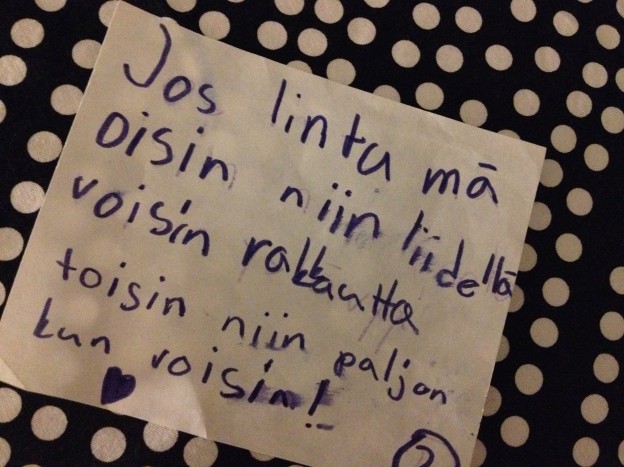 Jos lintu mä
oisin niin liidellä
voisin rakkautta
toisin niin paljon
kun voisin!